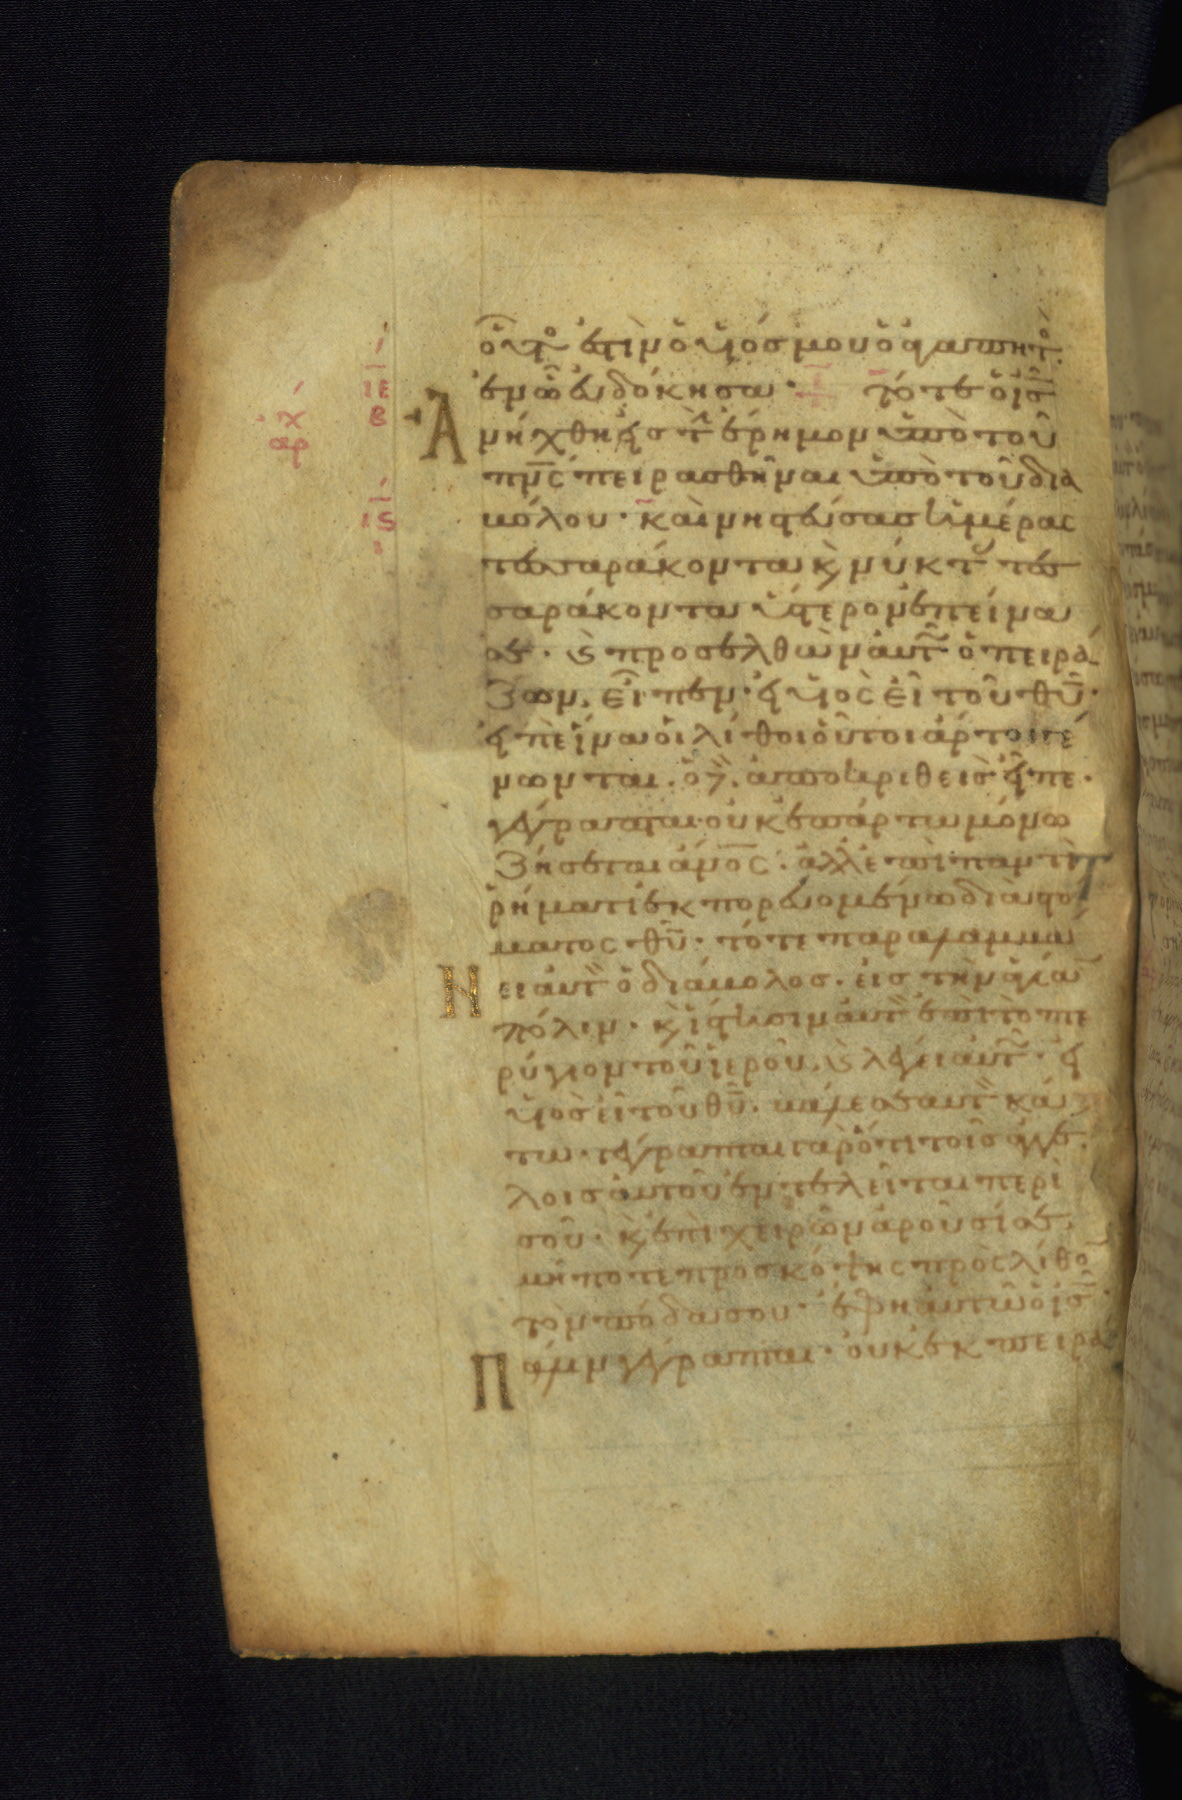 οὗτός ἐστιν ὁ υἱός μου ὁ ἀγαπητό
ἐν ᾧ εὐδόκησα · τότε ὁ ις
Ανήχθη εἰς τὴν ἔρημον ὑπὸ τοῦ
πνς πειρασθῆναι ὑπὸ τοῦ δια
βόλου · καὶ νηστεύσας ἡμέρας
τεσσαράκοντα κ νύκτας τεσ
σαράκοντα ὕστερον ἐπείνα
σε · κ προσελθὼν αὐτῶ ὁ πειρά
ζων, εἶπεν · εἰ υἱὸς εἶ τοῦ θυ ·
εἰπὲ ἵνα οἱ λίθοι οὗτοι ἄρτοι γέ
νωνται · ὁ δὲ ἀποκριθεὶς εἶπε ·
γέγραπται οὐκ ἐπ ἄρτω μόνω
ζήσεται ανος · ἀλλ ἐπὶ παντὶ
ῥήματι ἐκπορευομένω διὰ στό
ματος θυ · τότε παραλαμβά
Νει αὐτὸν ὁ διάβολος · εἰς τὴν ἁγίαν
πόλιν · κ ἵστησιν αὐτὸν ἐπὶ τὸ πτε
ρύγιον τοῦ ἱεροῦ, κ λέγει αὐτῶ · εἰ
υἱὸς εἶ τοῦ θυ · βάλε σεαυτὸν κά
τω · γέγραπται γὰρ ὅτι τοῖς ἀγγέ
λοις αὐτοῦ ἐντελεῖται περὶ
σοῦ · κ ἐπὶ χειρῶν ἀροῦσί σε,
μήποτε προσκόψης πρὸς λίθον
τὸν πόδα σου · ἔφη αὐτῶ ὁ ις ·
Πάλιν γέγραπται · οὐκ ἐκπειρά
ιε
β
ις